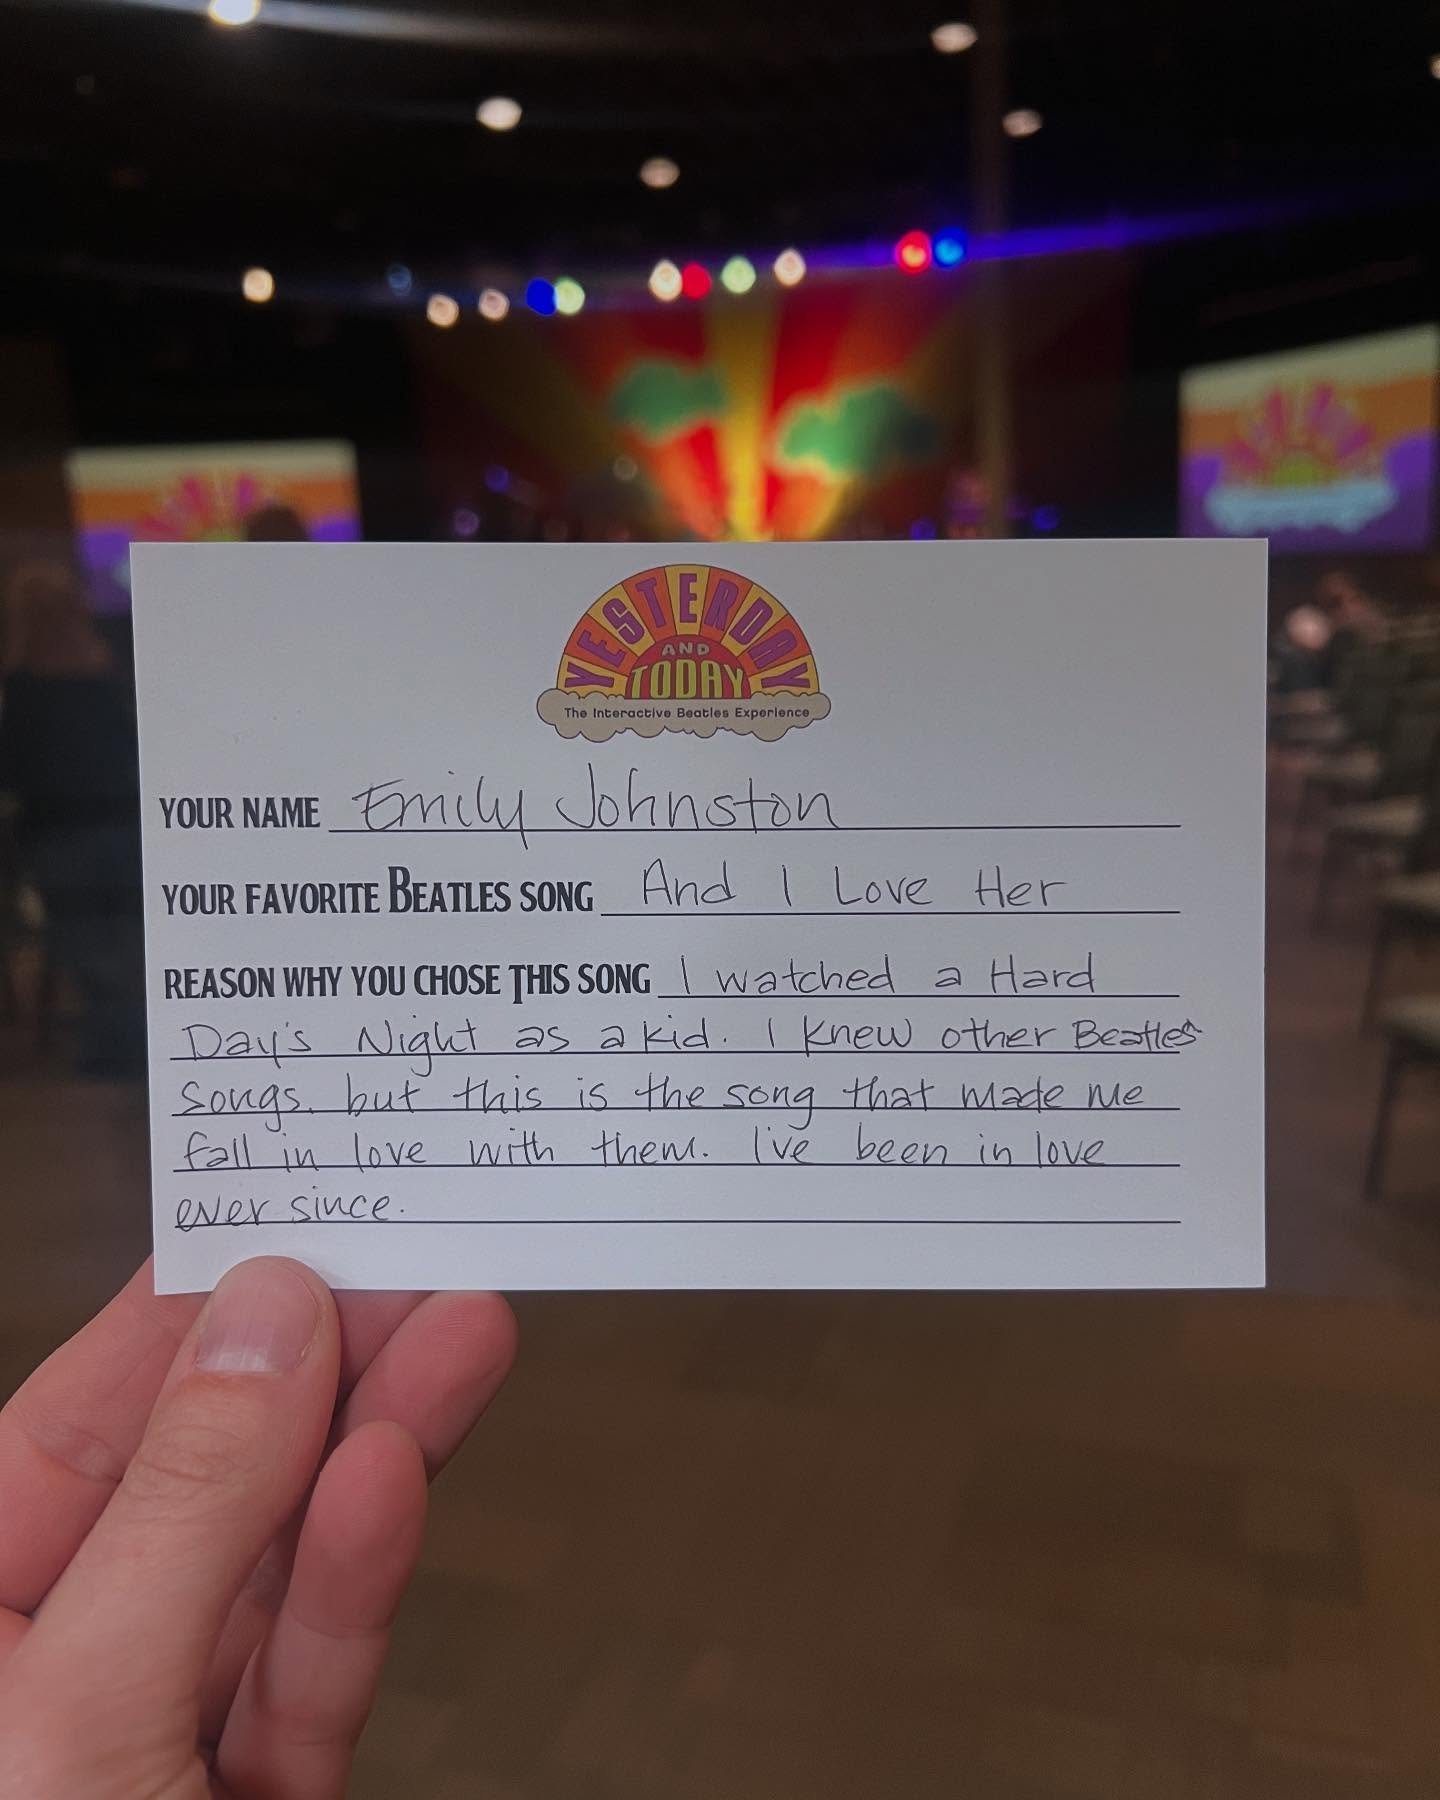 YESTERDAY
AND
TODAY
The Interactive Beatles Experience
YOUR NAME Emily Johnston
YOUR FAVORITE BEATLES SONG And I Love Her
REASON WHY YOU CHOSE THIS SONG I watched a Hard
Day's Night as a kid. I knew other Beatles
songs. but this is the song that made me
fall in love with them. I've been in love
ever since.